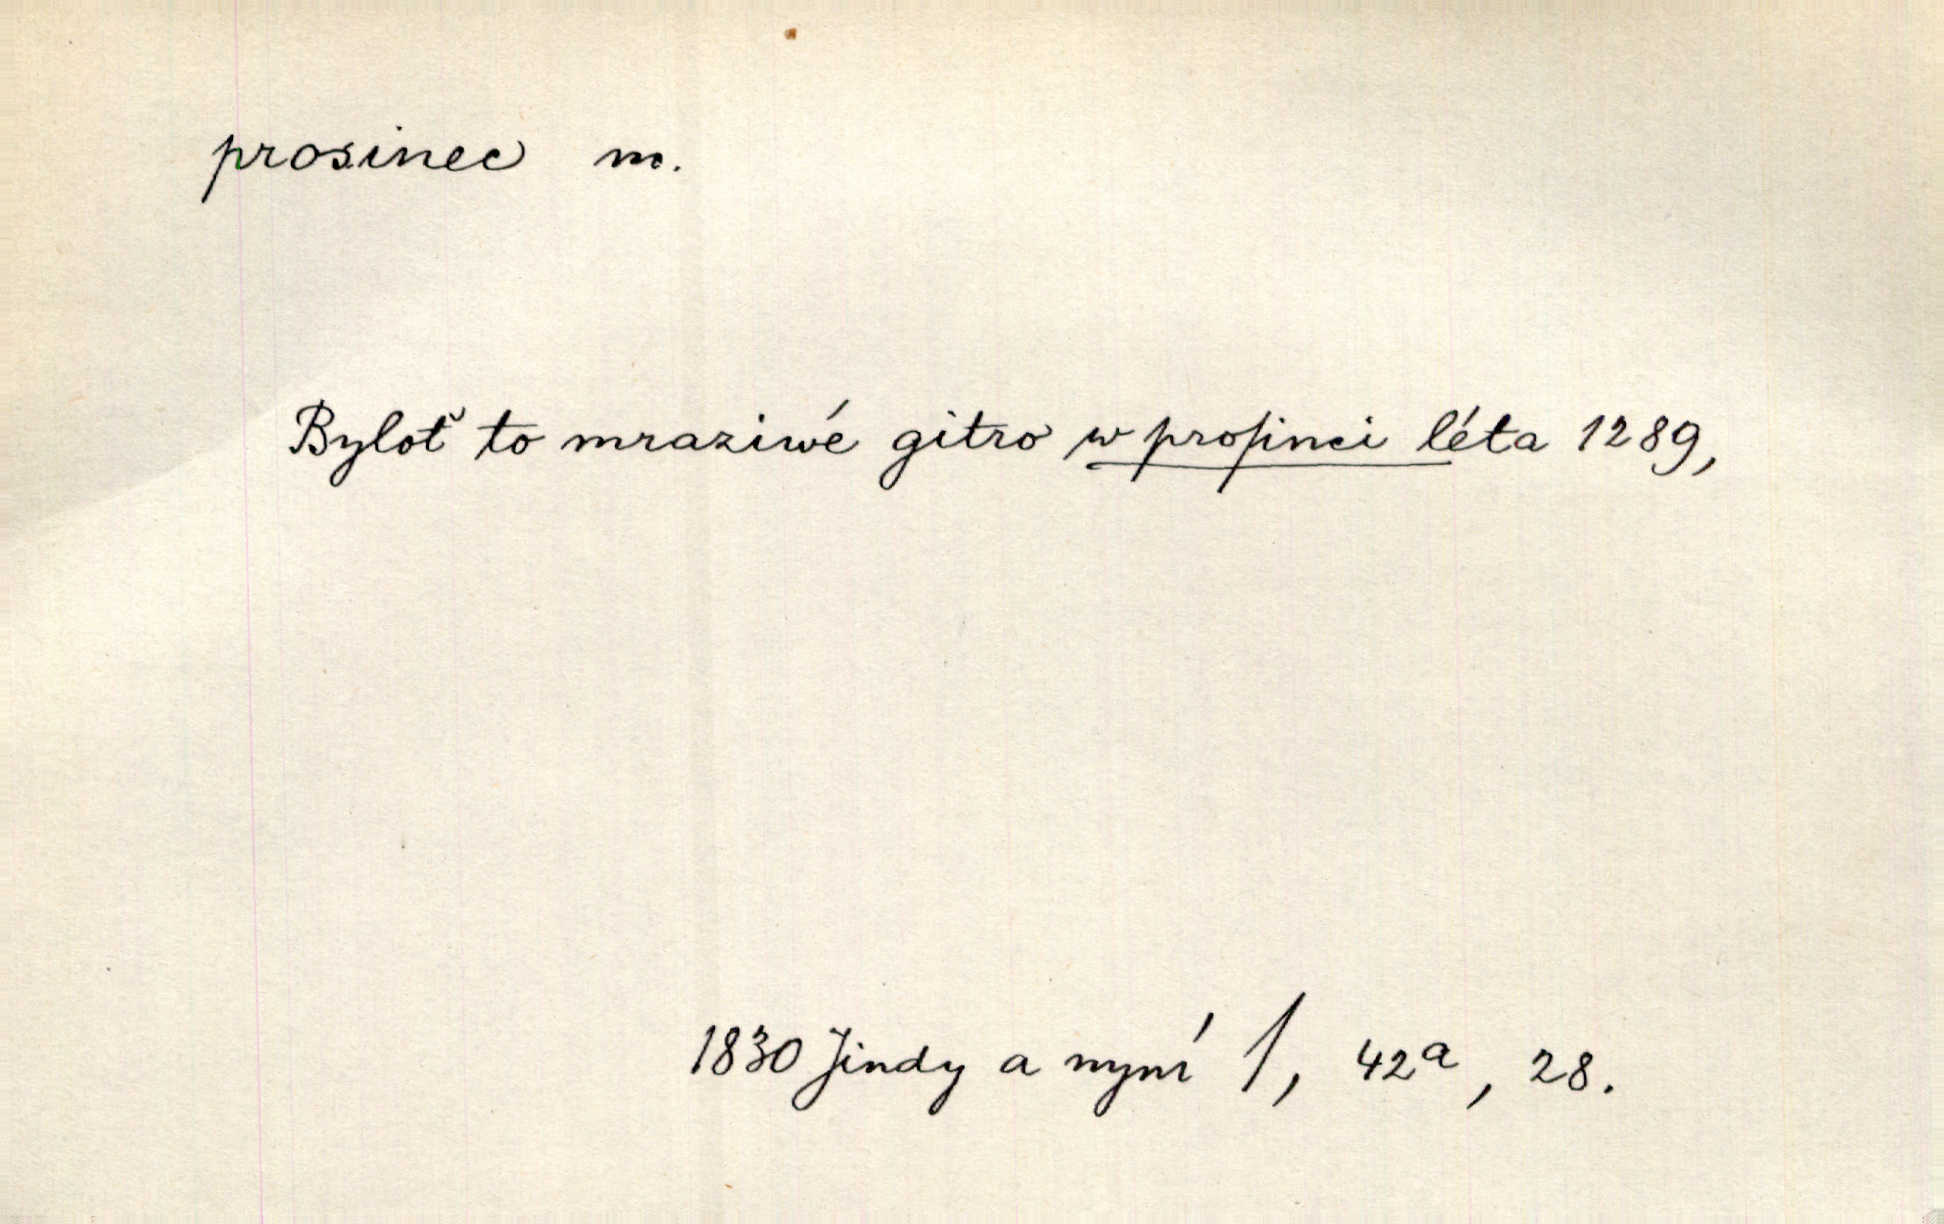 prosinec m.
Byloť to mraziwé gitro w proſinci léta 1289,
1830 Jindy a nyní /, 42a, 28.